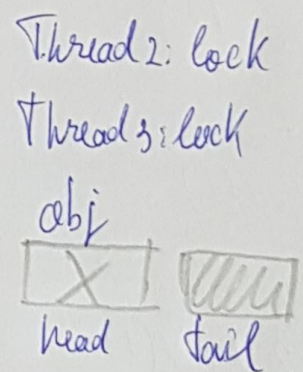 Thread 2: lock
Thread 3: lock
obj
head tail